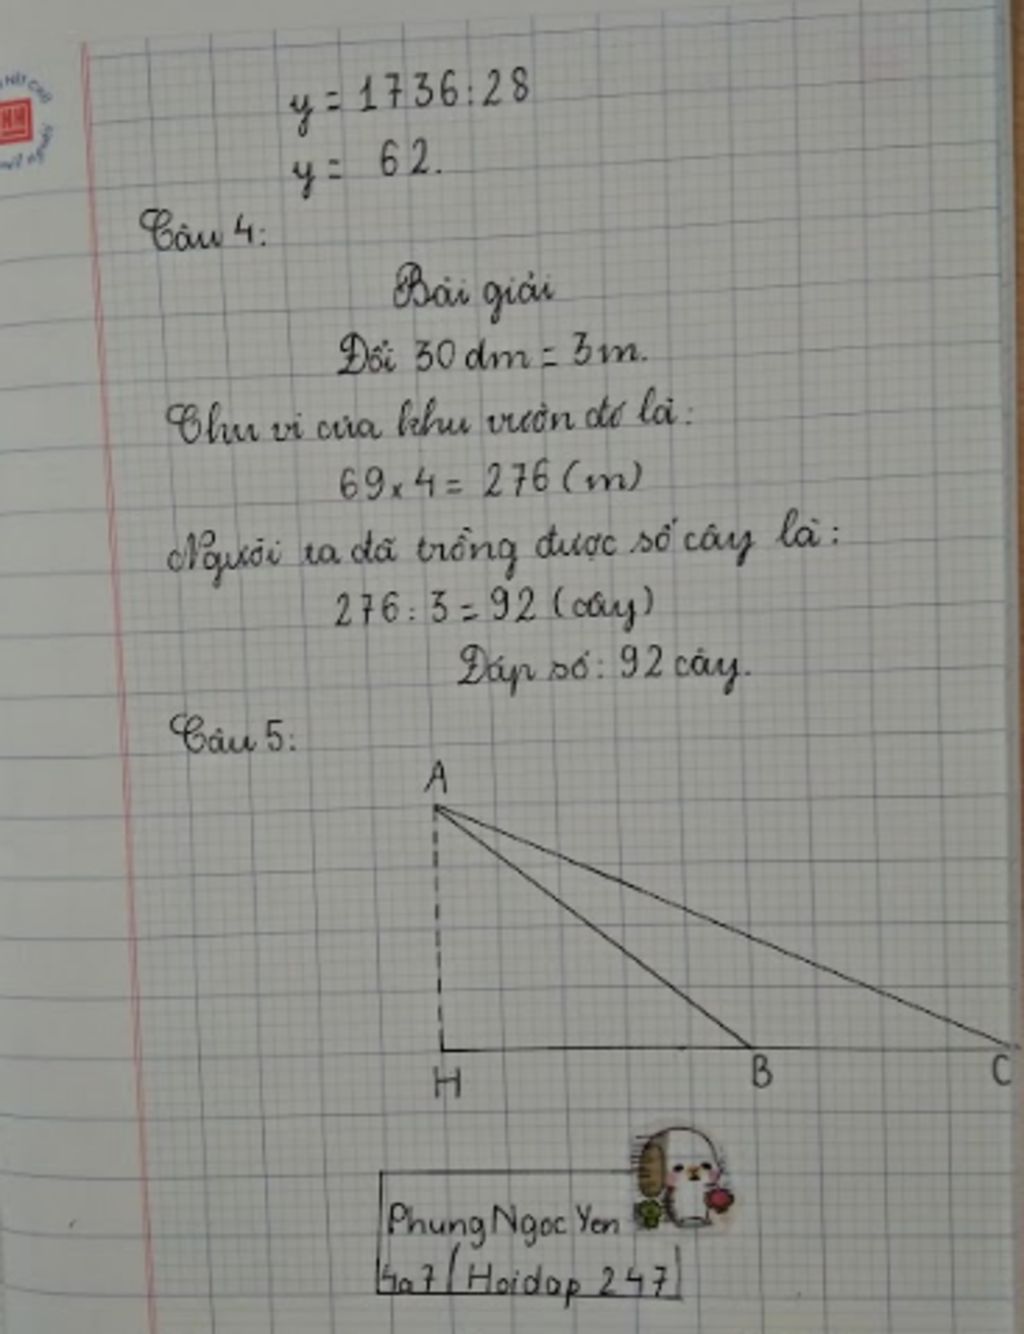 y = 1736 : 28
y = 62.
Câu 4:
Bài giải
Đổi 30 dm = 3 m.
Chu vi của khu vườn đó là:
69 x 4 = 276 (m)
Người ta đã trồng được số cây là:
276 : 3 = 92 (cây)
Đáp số: 92 cây.
Câu 5:
A
H B C
Phung Ngoc Yen
4a7 / Hoidap 247